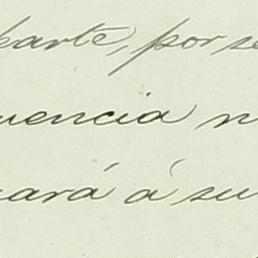 parte, por se
uencia n
ará á su